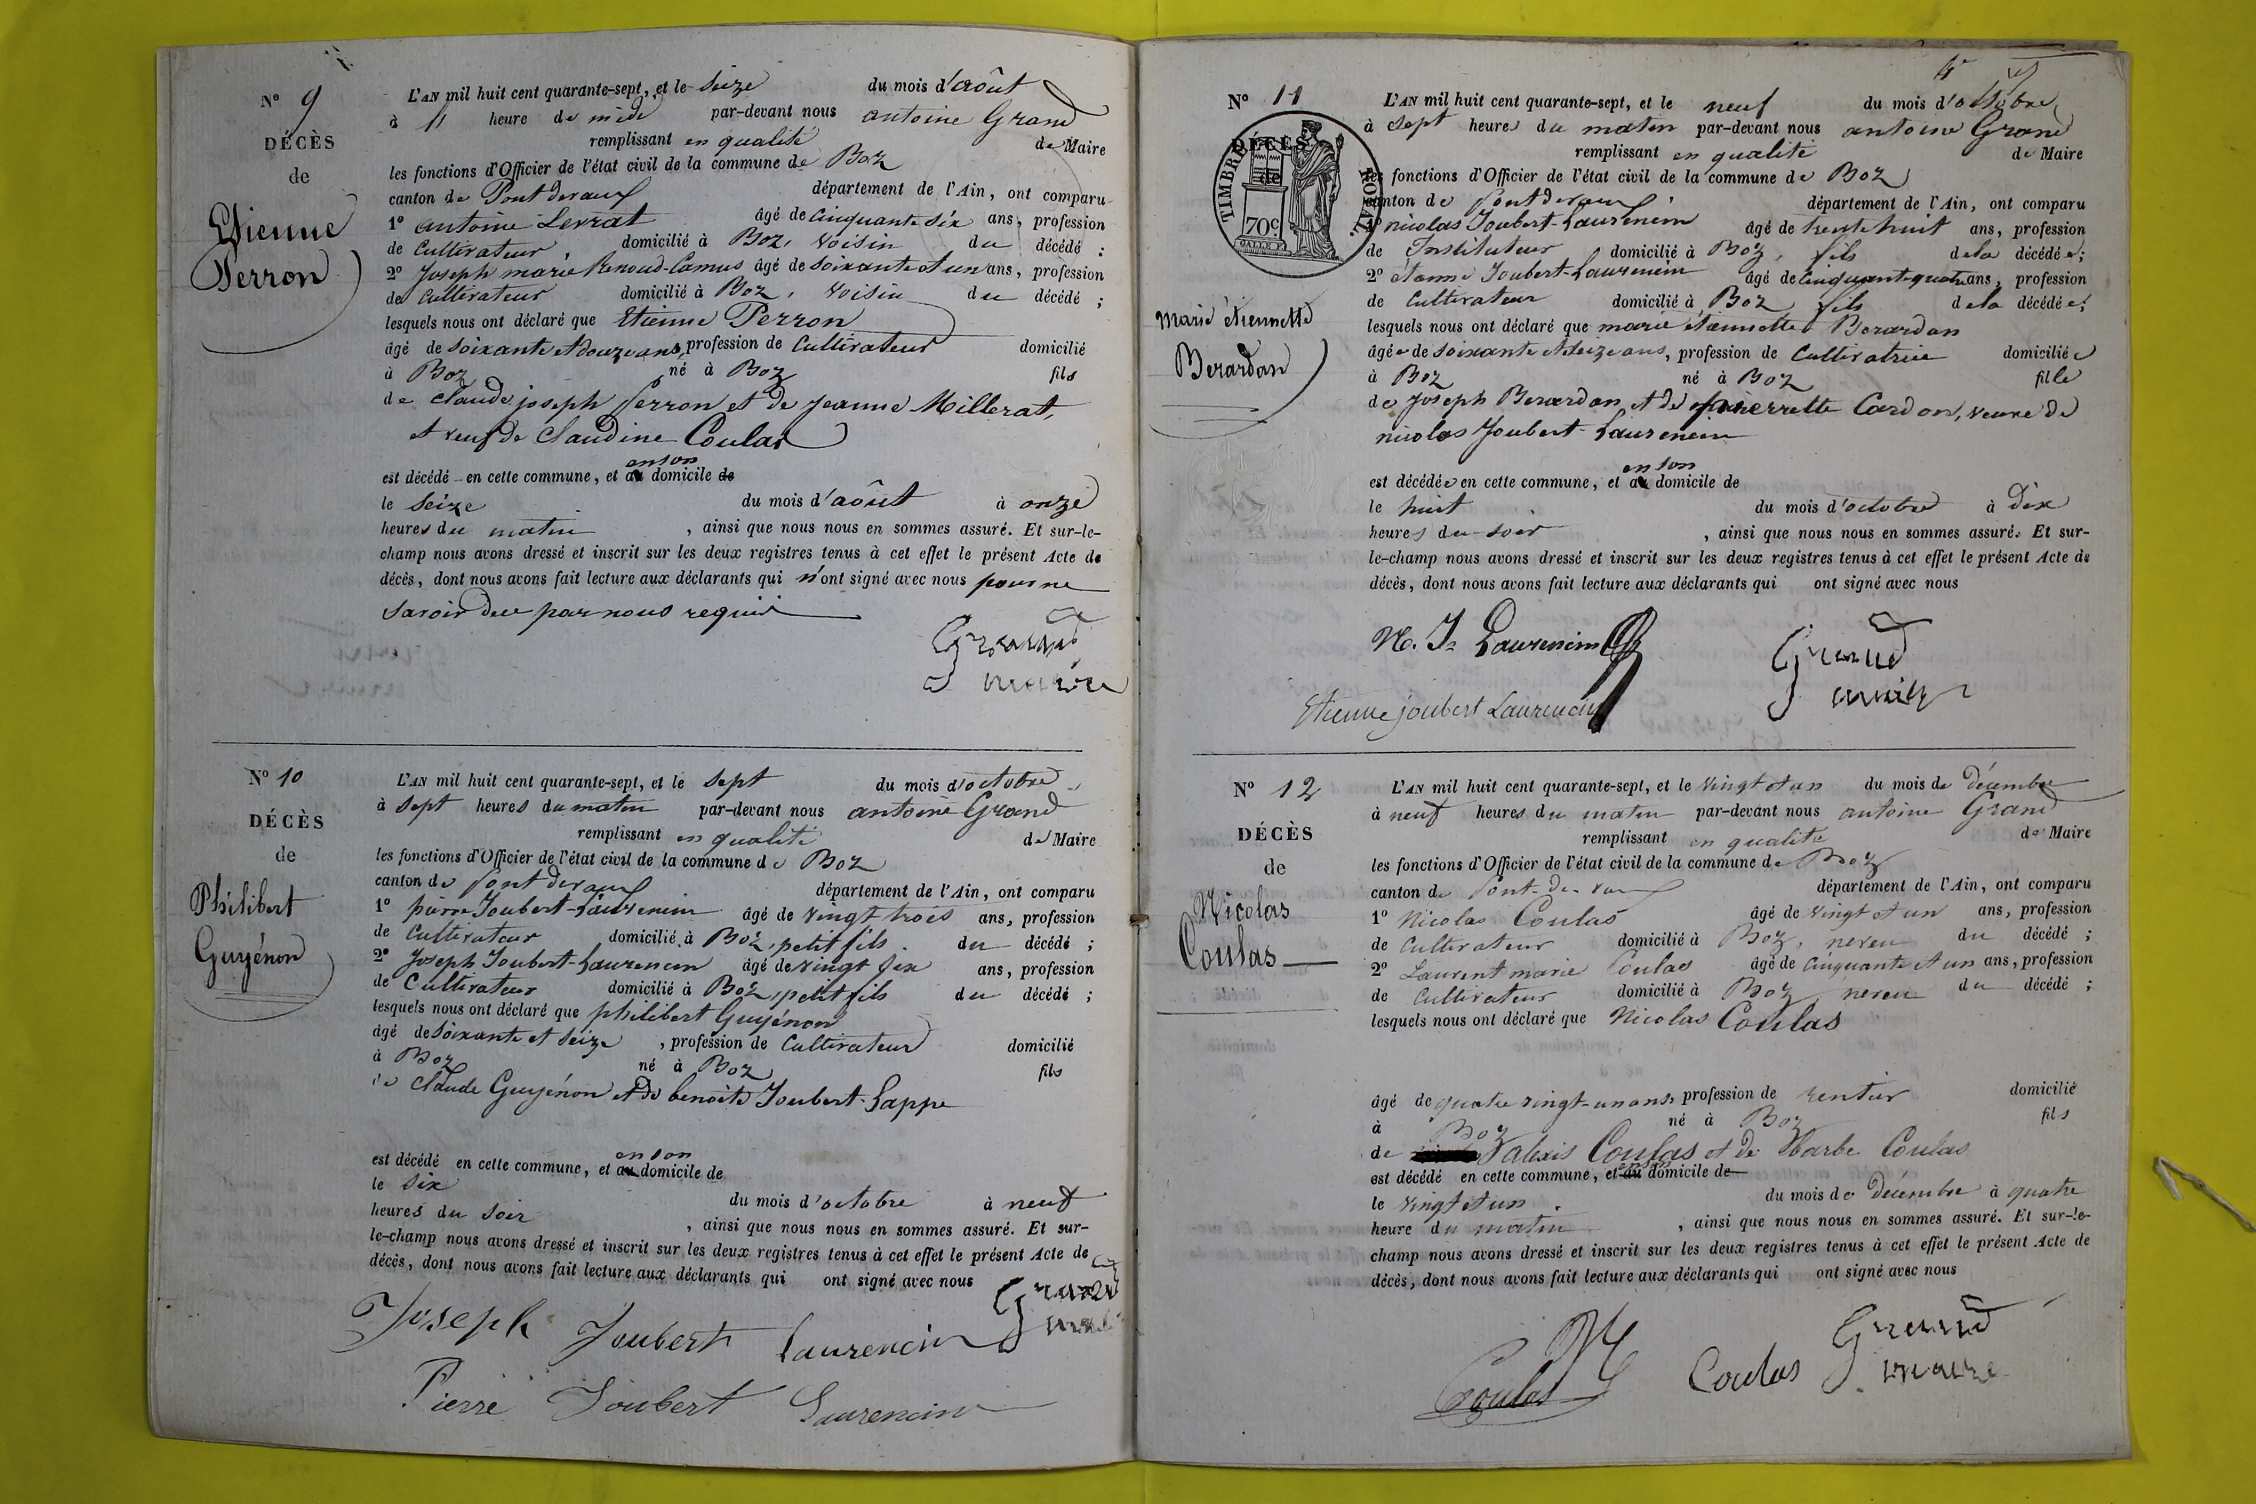 N° 9
DÉCÈS
de
Etienne
Perron
L'AN mil huit cent quarante-sept, et le seize du mois d'août
à 11 heure de midi par-devant nous antoine Grand
remplissant en qualité de Maire
les fonctions d'Officier de l'état civil de la commune de Boz
canton de Pont devaux département de l'Ain, ont comparu
1° antoine Levrat âgé de cinquante six ans, profession
de cultivateur domicilié à Boz, voisin du décédé :
2° Joseph marie Renoud-Camus âgé de soixante et un ans, profession
de cultivateur domicilié à Boz, voisin du décédé ;
lesquels nous ont déclaré que Etienne Perron
âgé de soixante et douze ans, profession de cultivateur domicilié
à Boz né à Boz fils
de claude joseph Perron et de jeanne Millerat,
et veuf de Claudine Coulas
en son
est décédé en cette commune, et au domicile de
le seize du mois d'août à onze
heures du matin , ainsi que nous nous en sommes assuré. Et sur-le-
champ nous avons dressé et inscrit sur les deux registres tenus à cet effet le présent Acte de
décès, dont nous avons fait lecture aux déclarants qui n'ont signé avec nous pour ne
savoir de ce par nous requis
Grand
maire
N° 10
DÉCÈS
de
Philibert
Guyénon
L'AN mil huit cent quarante-sept, et le sept du mois d'octobre
à sept heures du matin par-devant nous antoine Grand
remplissant en qualité de Maire
les fonctions d'Officier de l'état civil de la commune de Boz
canton de Pont devaux département de l'Ain, ont comparu
1° pierre Joubert-Laurencin âgé de vingt trois ans, profession
de cultivateur domicilié à Boz, petit fils du décédé ;
2° Joseph Joubert-Laurencin âgé de vingt six ans, profession
de Cultivateur domicilié à Boz, petit fils du décédé ;
lesquels nous ont déclaré que philibert Guyénon
âgé de soixante et seize , profession de cultivateur domicilié
à Boz né à Boz fils
de Claude Guyénon et de benoite Joubert-Lappe
en son
est décédé en cette commune, et au domicile de
le six du mois d'octobre à neuf
heures du soir , ainsi que nous nous en sommes assuré. Et sur-
le-champ nous avons dressé et inscrit sur les deux registres tenus à cet effet le présent Acte de
décès, dont nous avons fait lecture aux déclarants qui ont signé avec nous
Grand
maire
Joseph Joubert Laurencin
Pierre Joubert Laurencin
N° 11
DÉCÈS
de
TIMBRE ROYAL
70c
marie étiennette
Berardan
L'AN mil huit cent quarante-sept, et le neuf du mois d'octobre
à sept heures du matin par-devant nous antoine Grand
remplissant en qualité de Maire
les fonctions d'Officier de l'état civil de la commune de Boz
canton de Pont devaux département de l'Ain, ont comparu
1° nicolas Joubert-Laurencin âgé de trente huit ans, profession
de Instituteur domicilié à Boz, fils de la décédée ;
2° étienne Joubert-Laurencin âgé de cinquante quatre ans, profession
de cultivateur domicilié à Boz fils de la décédée ;
lesquels nous ont déclaré que marie étiennette Berardan
âgée de soixante et seize ans, profession de cultivatrice domiciliée
à Boz né à Boz fille
de Joseph Berardan et de pierrette Cardon, veuve de
nicolas Joubert-Laurencin
en son
est décédée en cette commune, et au domicile de
le huit du mois d'octobre à dix
heures du soir , ainsi que nous nous en sommes assuré. Et sur-
le-champ nous avons dressé et inscrit sur les deux registres tenus à cet effet le présent Acte de
décès, dont nous avons fait lecture aux déclarants qui ont signé avec nous
N. Jt Laurencin
Grand
maire
Etienne joubert Laurencin
N° 12
DÉCÈS
de
Nicolas
Coulas
L'AN mil huit cent quarante-sept, et le vingt et un du mois de décembre
à neuf heures du matin par-devant nous antoine Grand
remplissant en qualité de Maire
les fonctions d'Officier de l'état civil de la commune de Boz
canton de Pont-de-vaux département de l'Ain, ont comparu
1° Nicolas Coulas âgé de vingt et un ans, profession
de cultivateur domicilié à Boz, neveu du décédé ;
2° Laurent marie Coulas âgé de cinquante et un ans, profession
de cultivateur domicilié à Boz, neveu du décédé ;
lesquels nous ont déclaré que Nicolas Coulas
âgé de quatre vingt-un ans, profession de rentier domicilié
à Boz né à Boz fils
de alexis Coulas et de Barbe Coulas
en son
est décédé en cette commune, et au domicile de
le vingt et un du mois de décembre à quatre
heure du matin , ainsi que nous nous en sommes assuré. Et sur-le-
champ nous avons dressé et inscrit sur les deux registres tenus à cet effet le présent Acte de
décès, dont nous avons fait lecture aux déclarants qui ont signé avec nous
Grand
maire
Coulas
Coulas